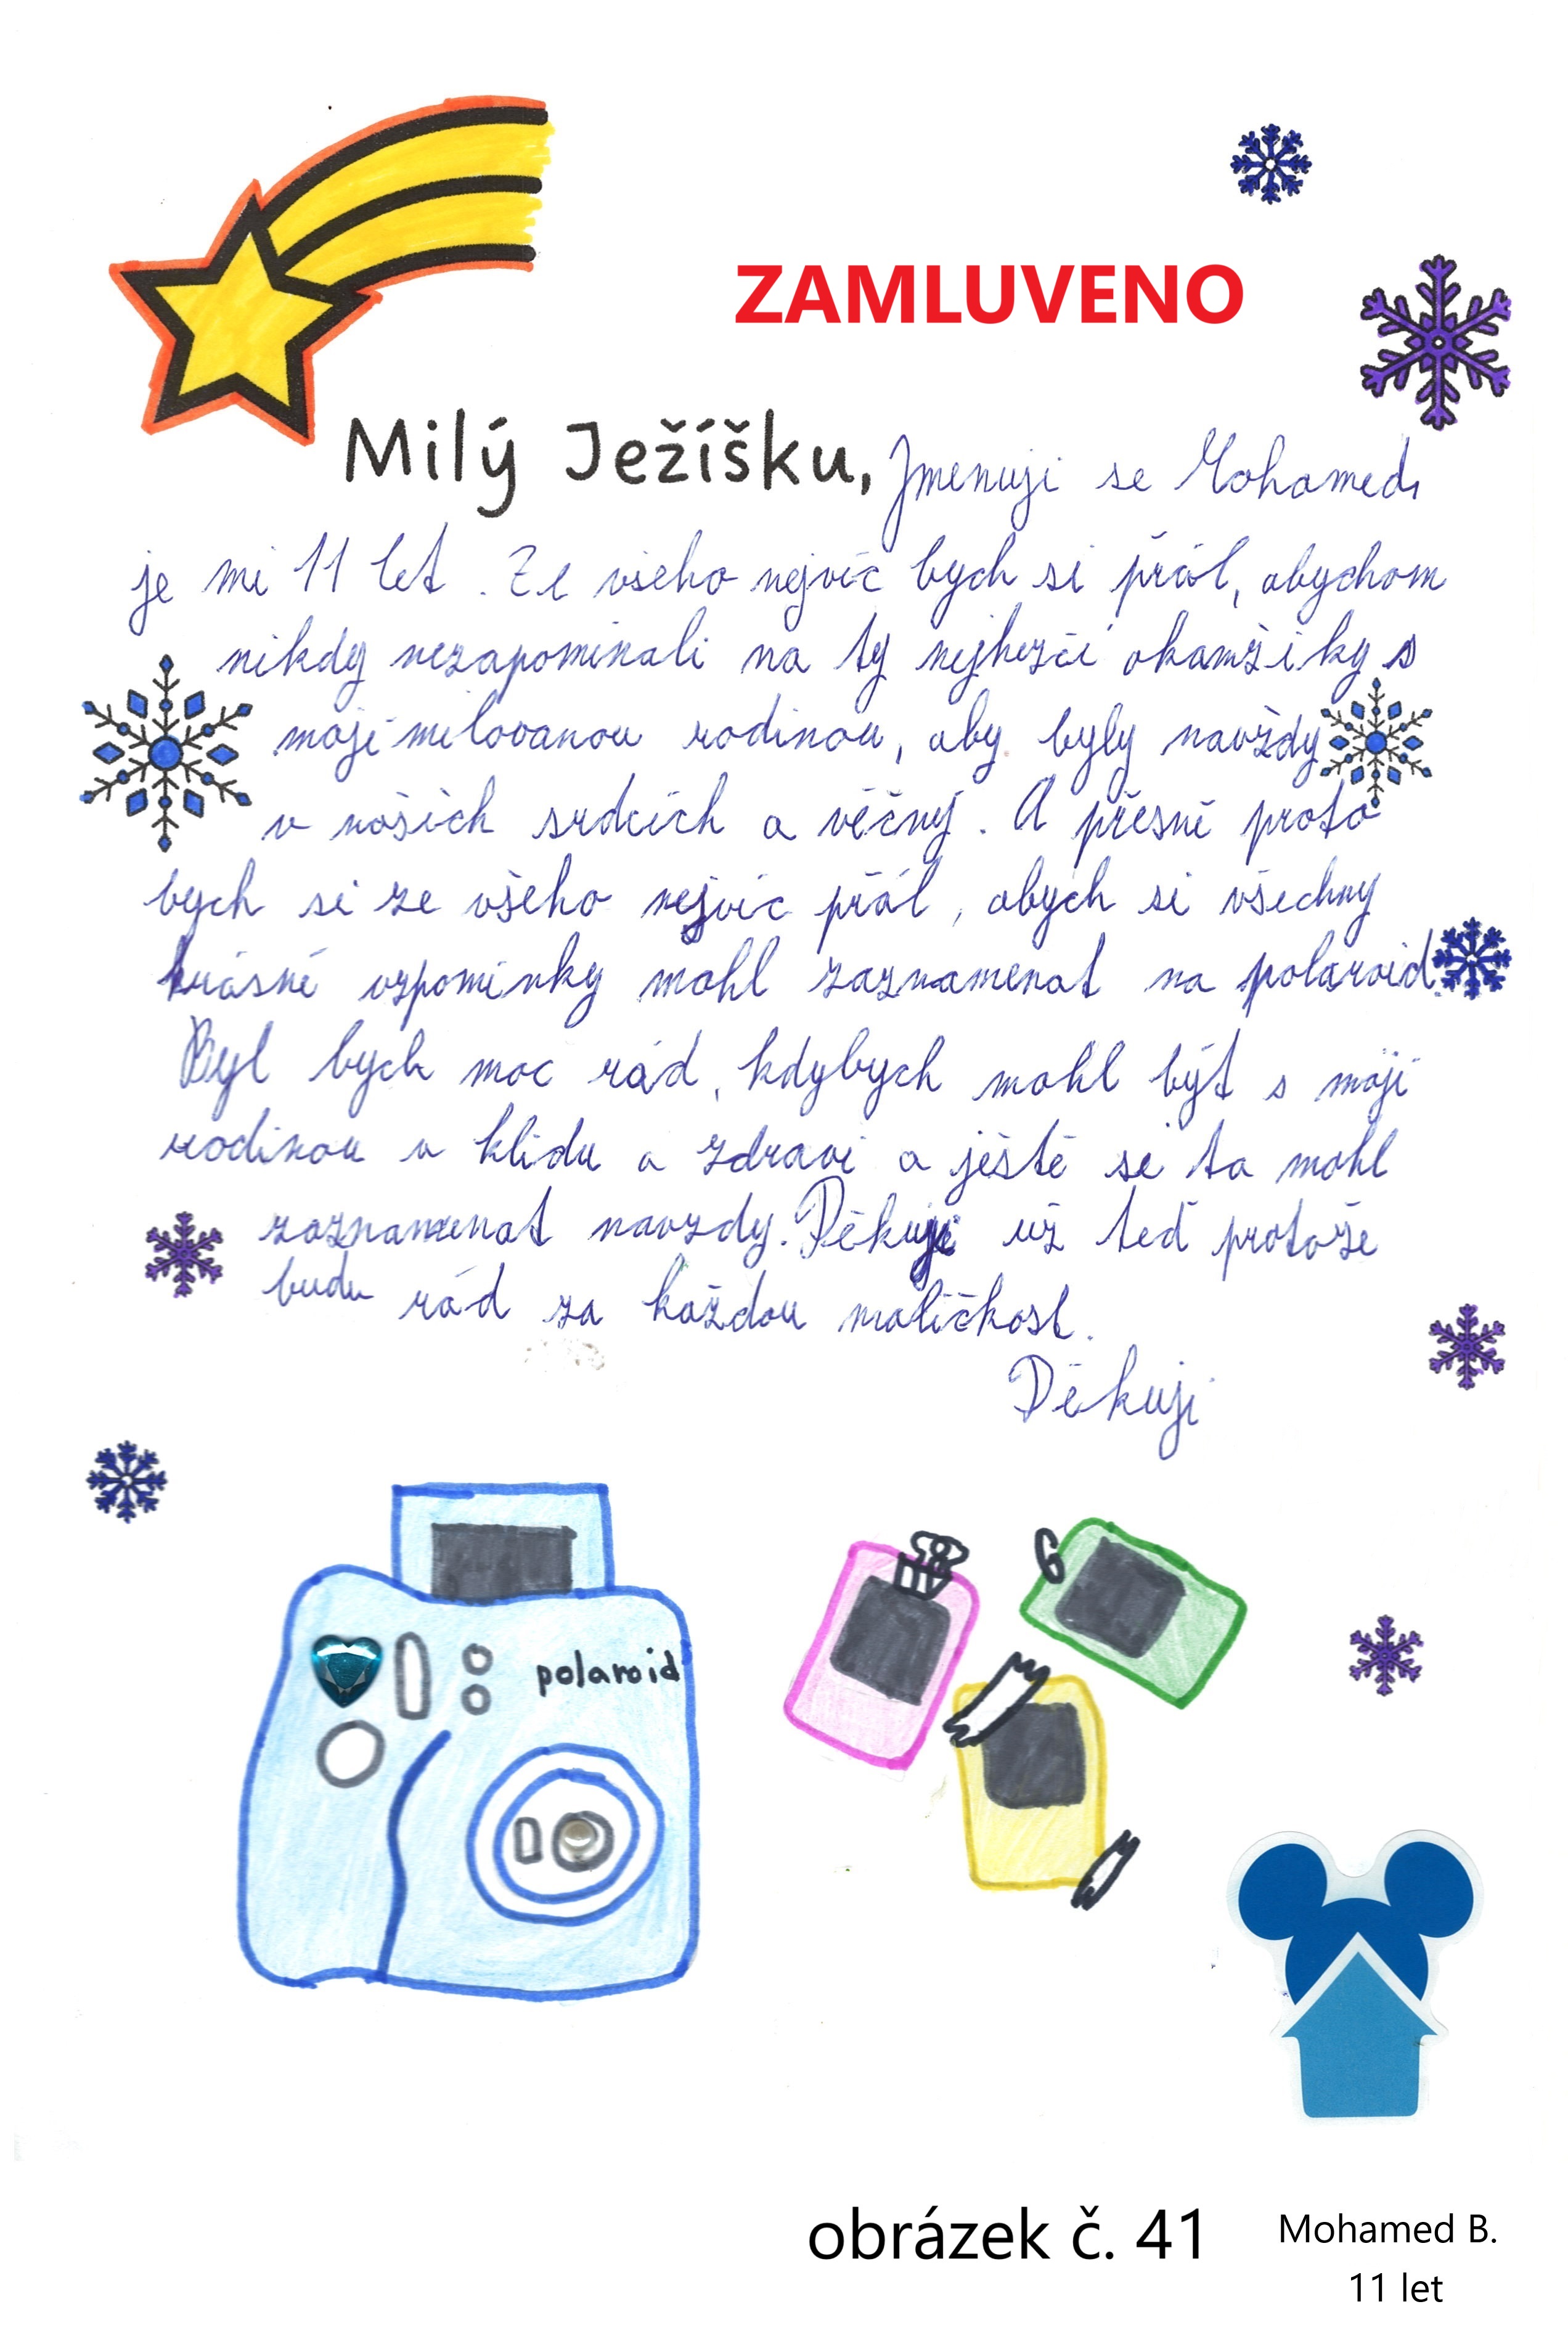 ZAMLUVENO
Milý Ježíšku, Jmenuji se Mohamed,
je mi 11 let. Ze všeho nejvíc bych si přál, abychom
nikdy nezapomínali na ty nejhezčí okamžiky s
mojí milovanou rodinou, aby byly navždy
v našich srdcích a věčný. A přesně proto
bych si ze všeho nejvíc přál, abych si všechny
krásné vzpomínky mohl zaznamenat na polaroid.
Byl bych moc rád, kdybych mohl být s mojí
rodinou v klidu a zdraví a ještě si to mohl
zaznamenat navzdy. Děkuji už teď protože
budu rád za každou maličkost.
Děkuji
polaroid
obrázek č. 41
Mohamed B.
11 let